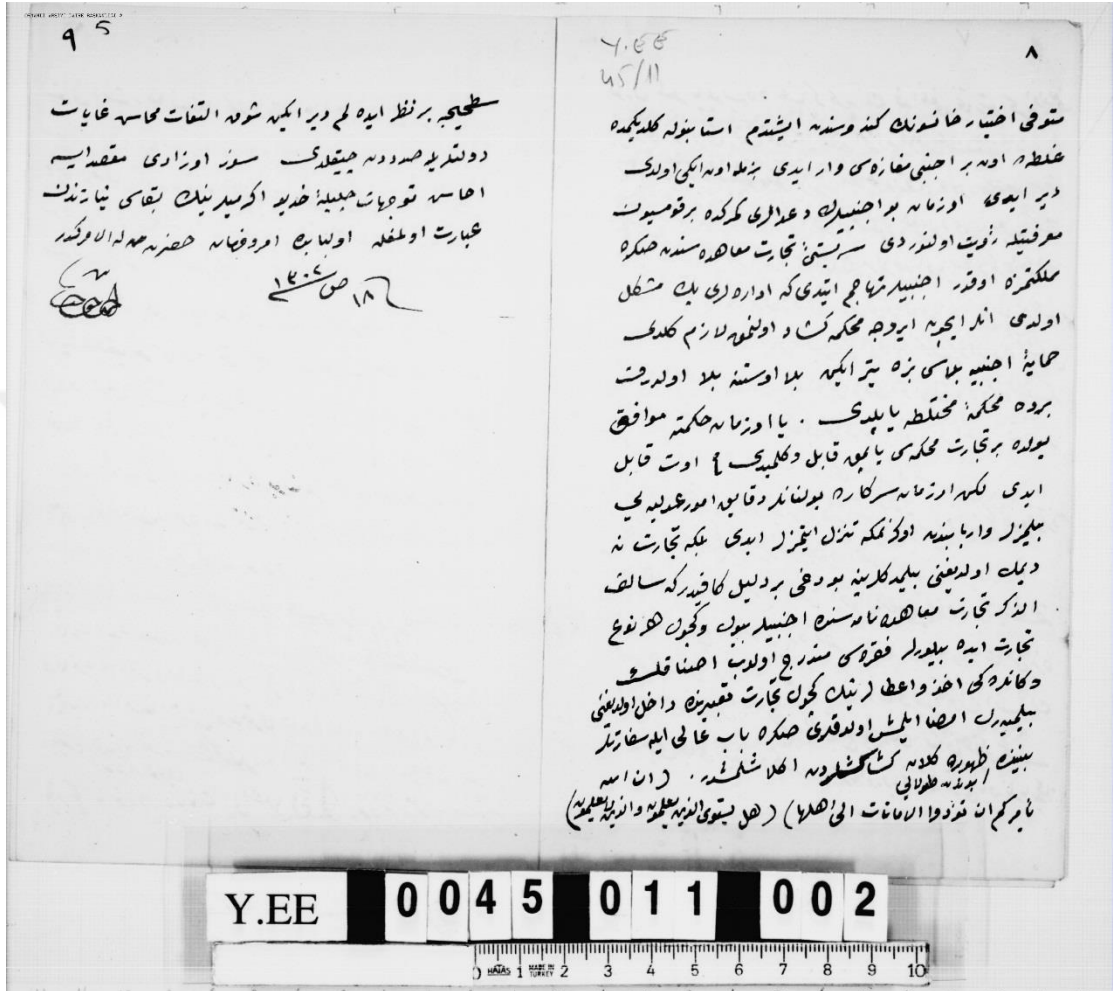 ٨
Y.EE
45/11
متوفى اختيار خانسونك كندوسندن ايشتدم استانبوله كلديكمده
غلطه ده اون بر اجنبى مغازه سى وار ايدى بزمله اون ايكى اولدى
دير ايدى اوزمان بو اجنبيلرك دعوالرى كمركده بر قومسيون
معرفتيله رؤيت اولنوردى سربستئ تجارت معاهده سندن صكره
مملكتمزه اوقدر اجنبيلر تهاجم ايتدى كه اداره لرى پك مشكل
اولدى انلر ايچون ايروجه محكمه كشاد اولنمق لازم كلدى
حماية اجنبيه بلاسى بزه يتر ايكن بلا اوستنه بلا اولهرق
برده محكمۀ مختلطه ياپلدى . يا اوزمان حكمته موافق
يولده بر تجارت محكمه سى ياپمق قابل دكلميدى ؟ اوت قابل
ايدى لكن اوزمان سر كارده بولنانلر دقايق امور عدليه يى
بيلمزلر واربابندن اوكرنمكه تنزل ايتمزلر ايدى بلكه تجارت نه
ديمك اولديغنى بيلمدكلرينه بودخى بر دليل كافيدر كه سالف
الذكر تجارت معاهده نامه سنده اجنبيلر بيوك وكچوك هر نوع
تجارت ايده بيلورلر فقره سى مندرج اولوب اصنافك
دكانده كى اخذ واعطالرينك كچوك تجارت تعبيرنده داخل اولديغنى
بيلميه رك امضا ايلمش اولدقلرى صكره باب عالى ايله سفارتلر
بيننده بوندن طولايى ظهوره كلان كشاكشلردن اكلاشلمشدر . (ان الله
يأمركم ان تؤدوا الامانات الى اهلها) (هل يستوى الذين يعلمون والذين لا يعلمون)
٩ 5
سطحيجه بر نظر ايده لم دير ايكن شوق التفات محاسن غايات
دولتلريله صددن چيقلدى سوز اوزادى مقصد ايسه
احاسن توجهات جليلۀ خديو اكرميلرينك بقاسى نيازندن
عبارت اولمغله اولبابده امر وفرمان حضرت من له الامركدر
١٨ ص ١٣٠٢
Y.EE 0045 011 002
0 HATAS 1 MADE IN TURKEY 2 3 4 5 6 7 8 9 10